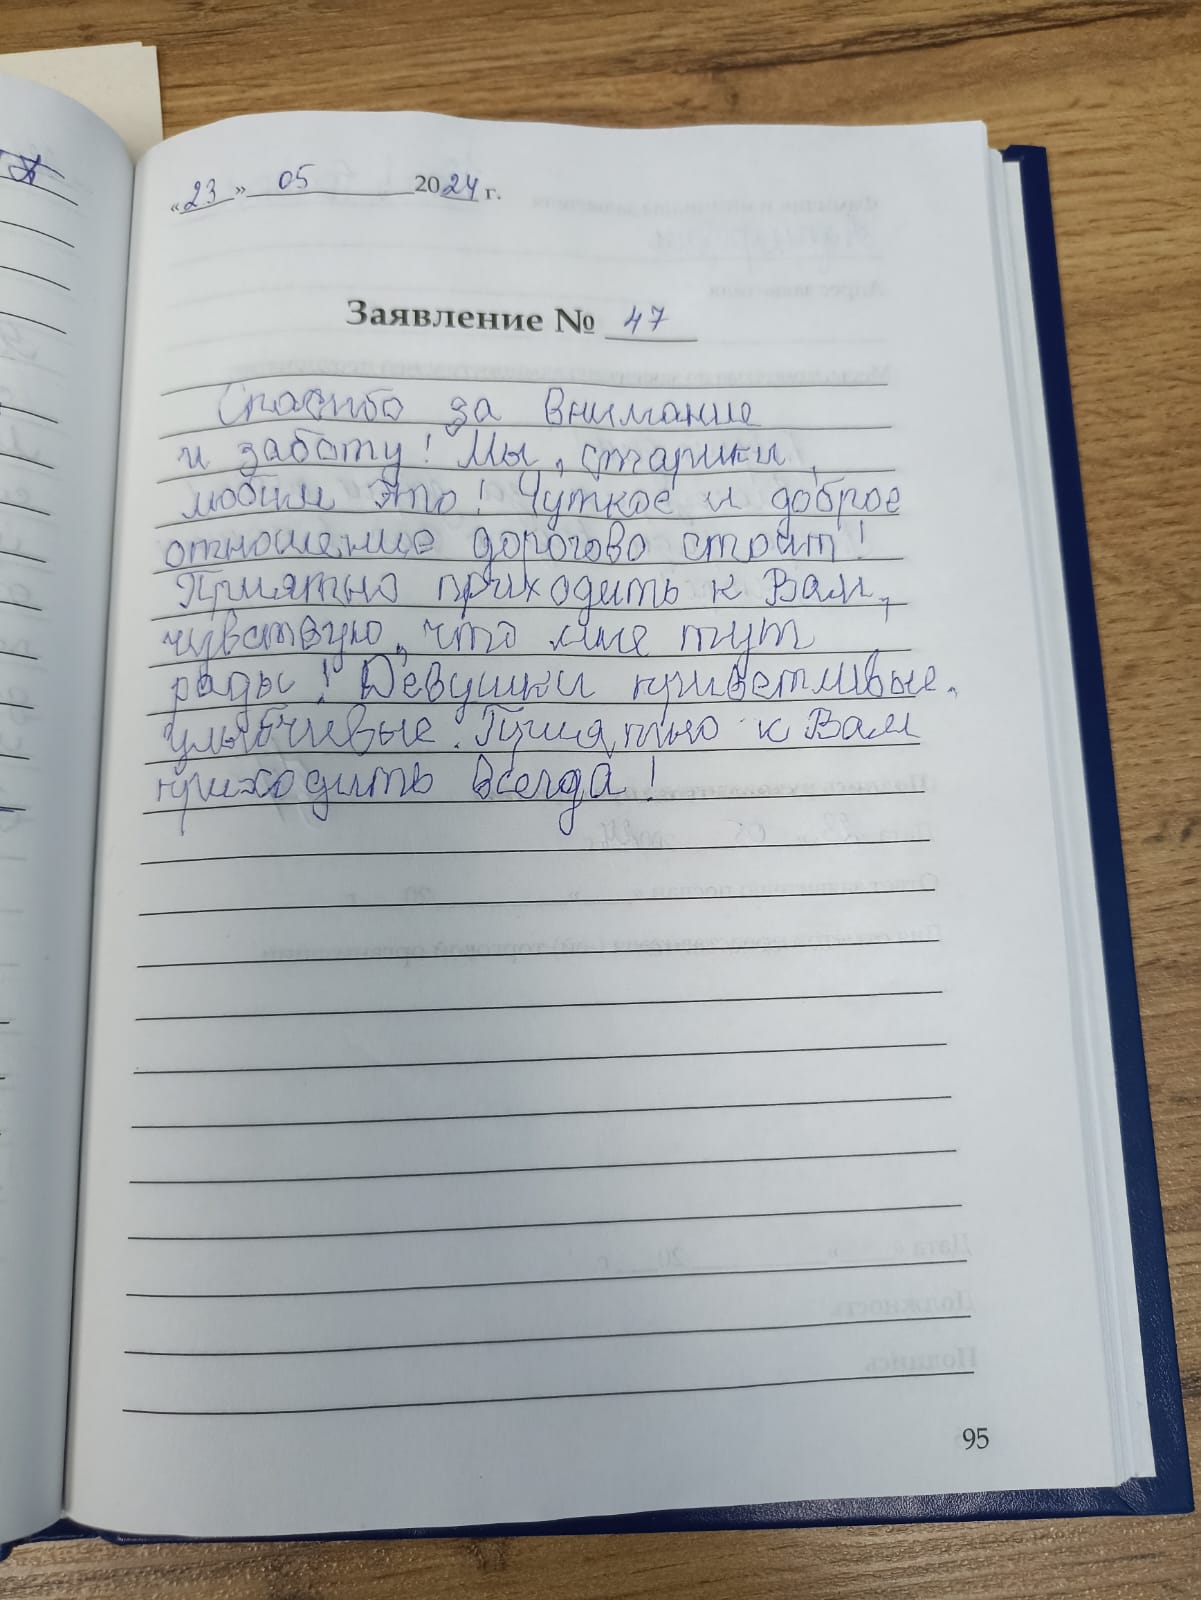 «23» 05 2024 г.
Заявление № 47
Спасибо за внимание
и заботу! Мы, старики,
любим это! Чуткое и доброе
отношение дорогово стоит!
Приятно приходить к Вам,
чувствую, что мне тут
рады! Девушки приветливые,
улыбчивые. Приятно к Вам
приходить всегда!
95